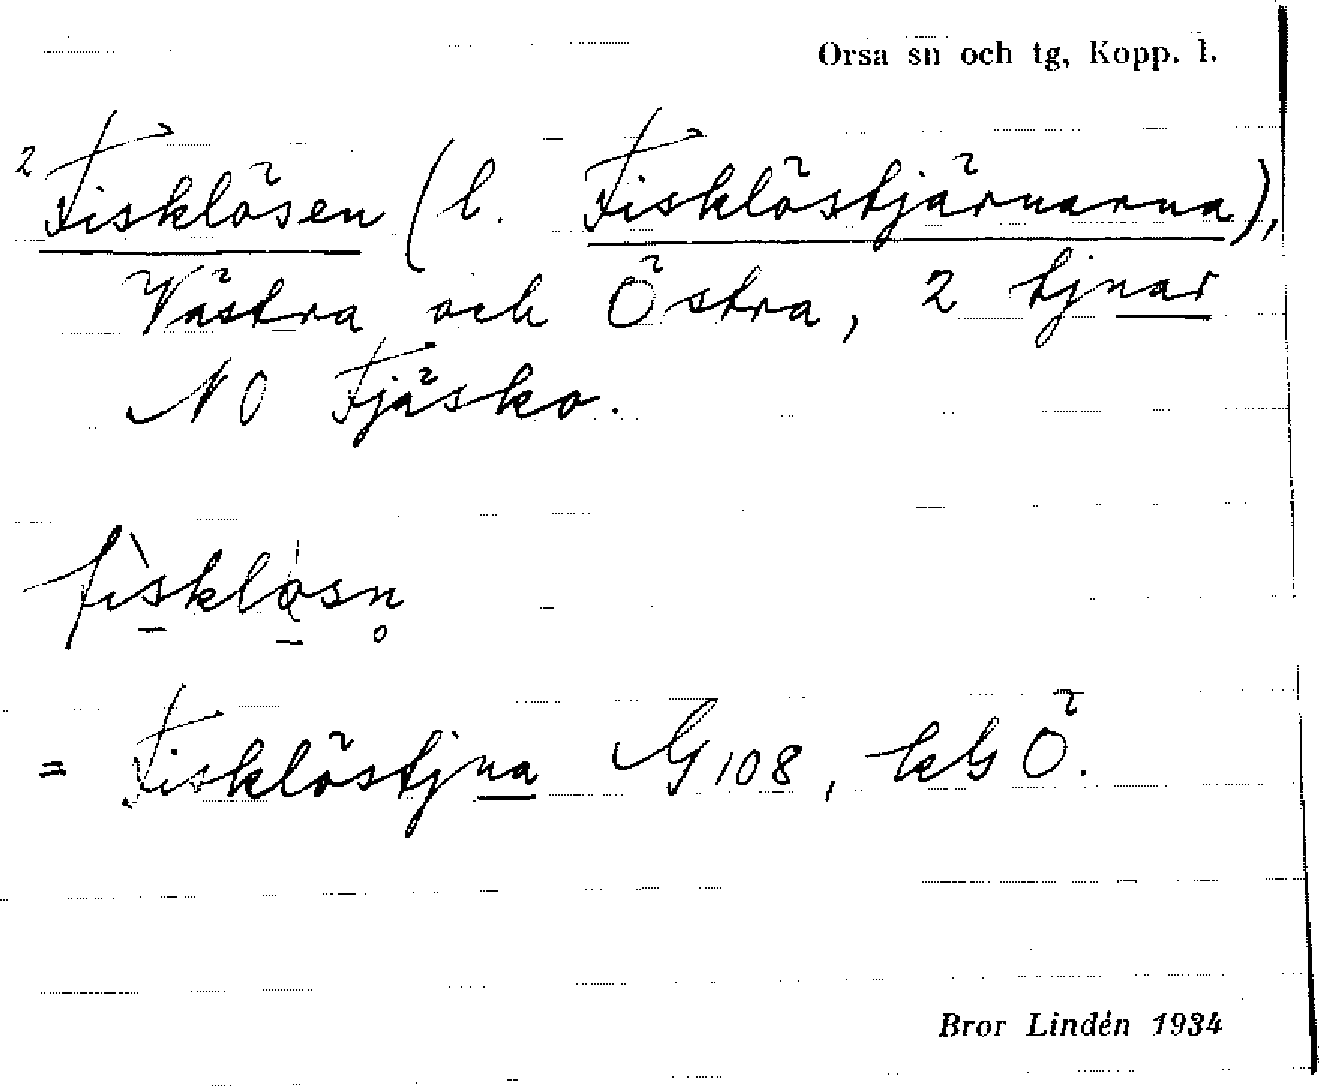 Orsa sn och tg, Kopp. l.
2 Fisklösen (l. Fisklöstjärnarna),
Västra och Östra, 2 tjnar
NO Fjäsko.
fisklosn
= Fisklöstjna G108, kG Ö.
Bror Lindén 1934